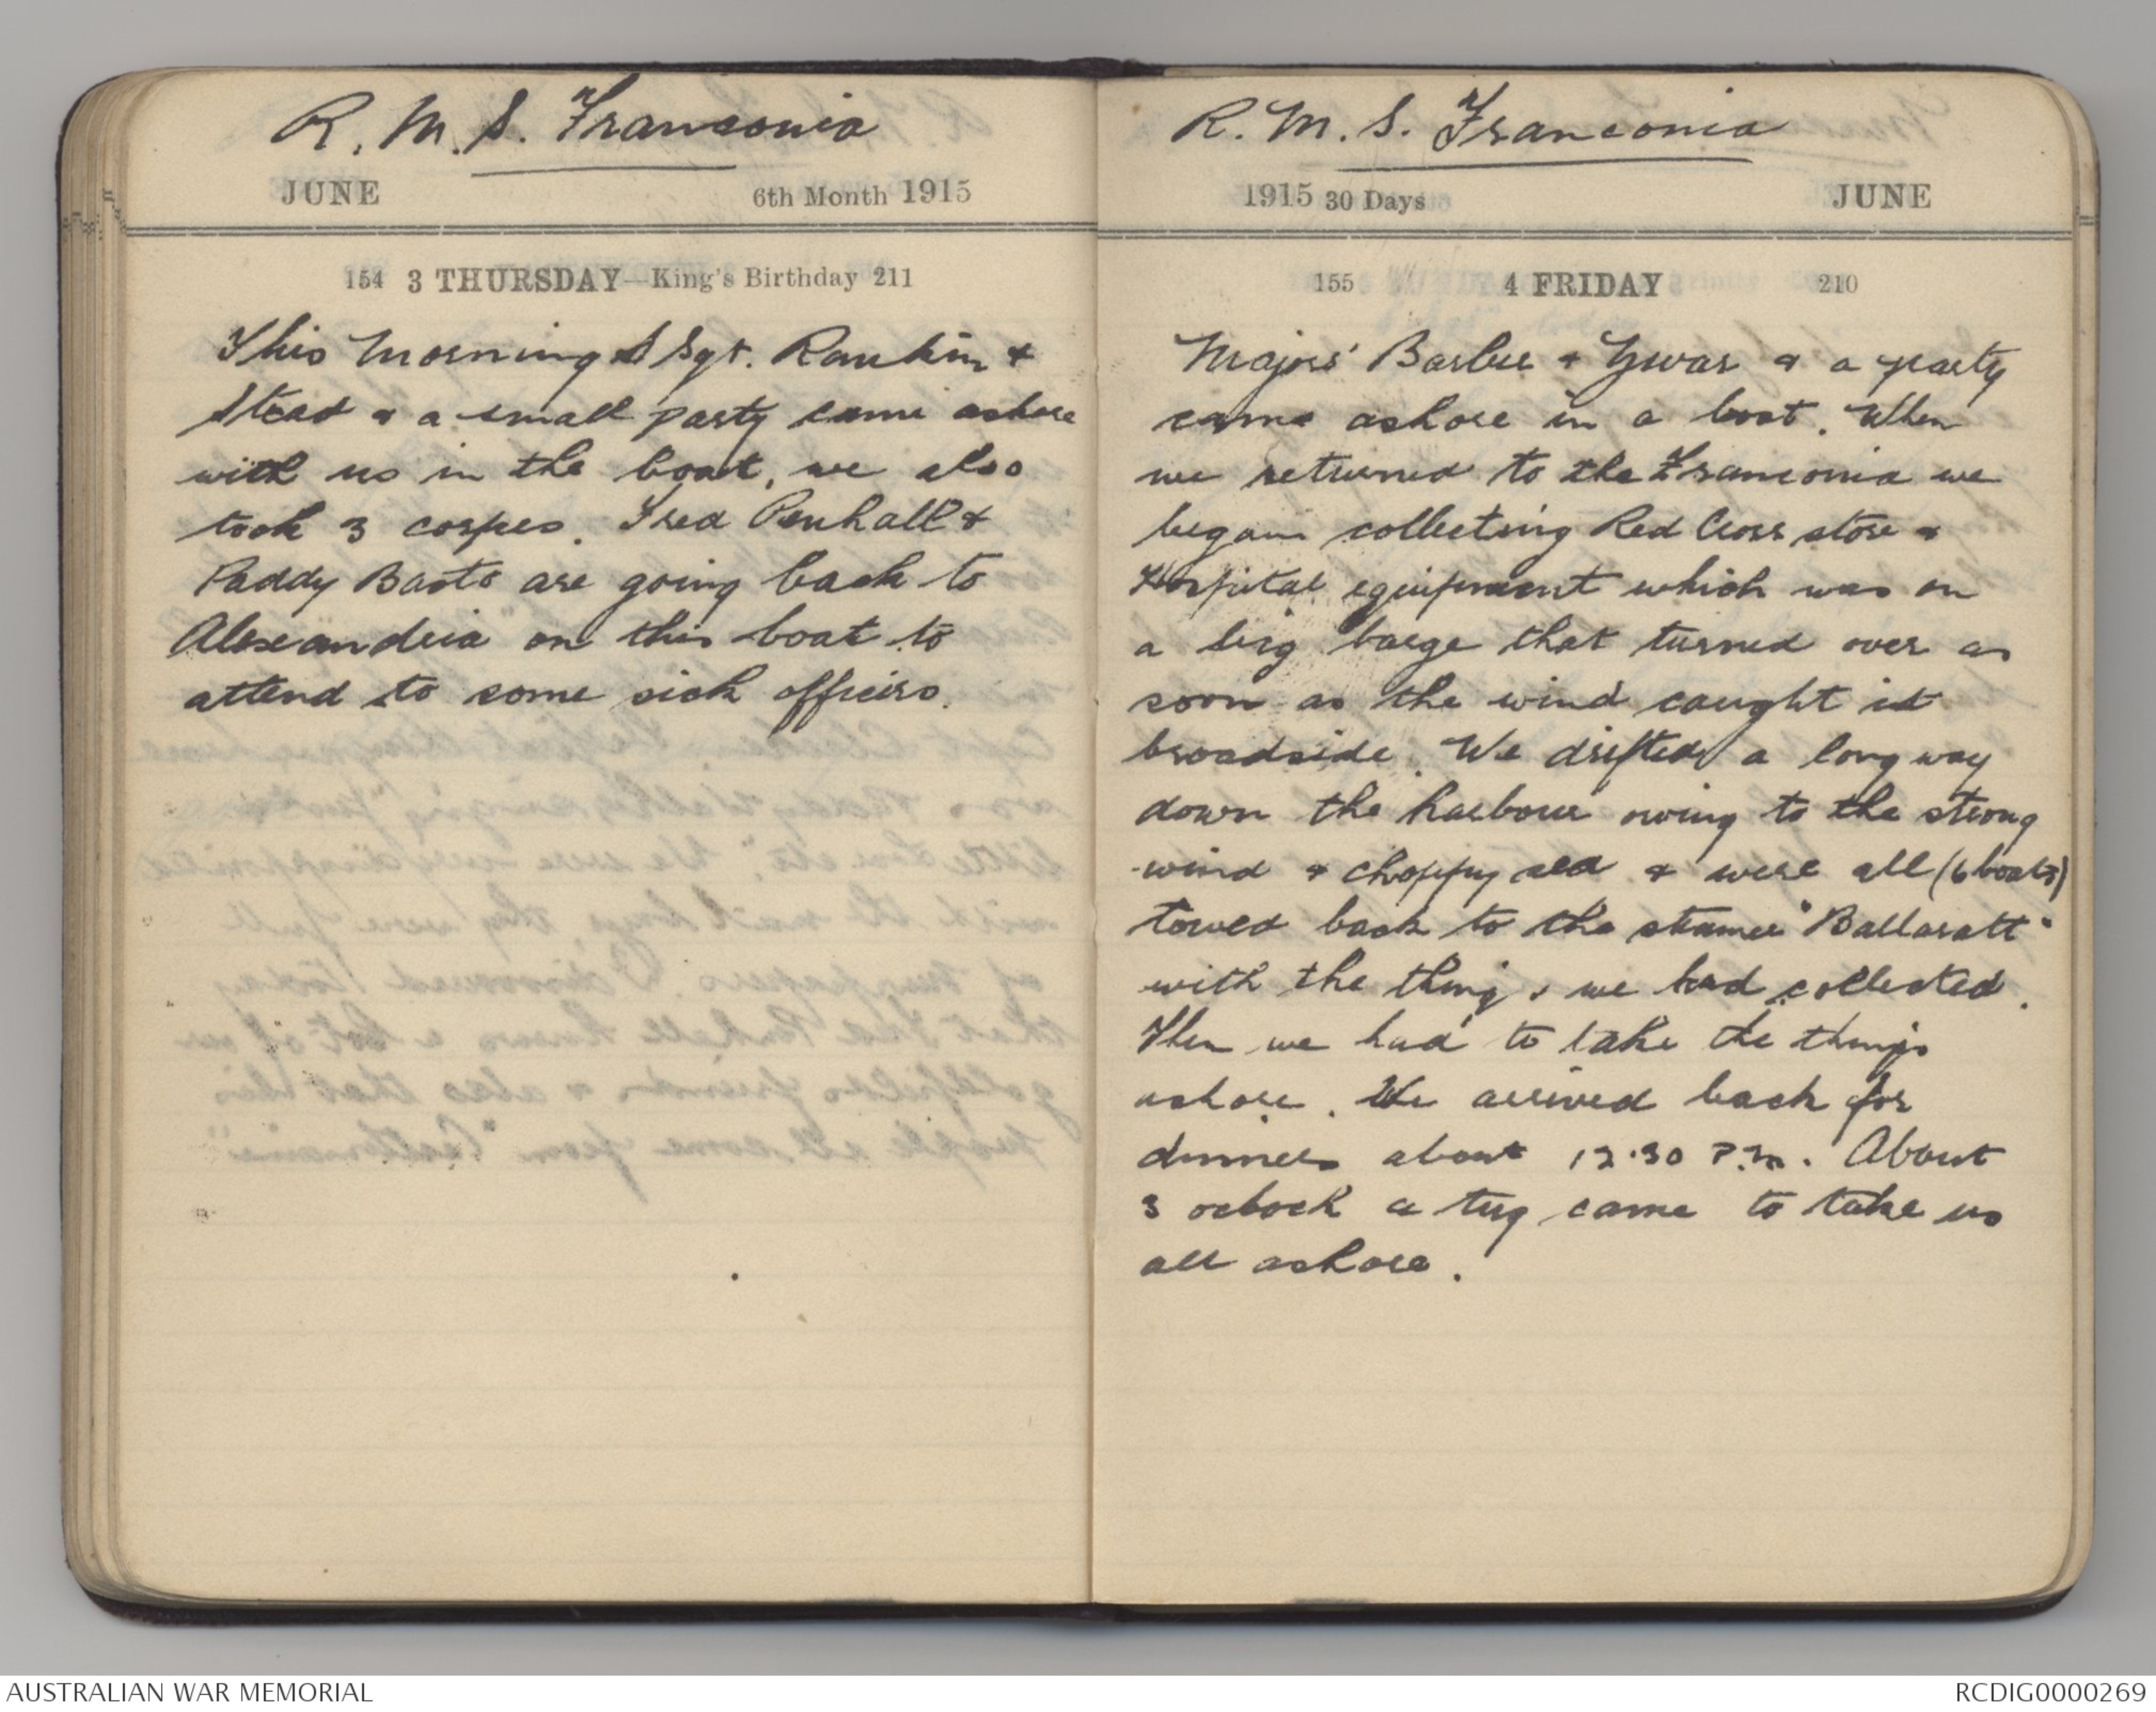 R. M. S. Franconia
JUNE 6th Month 1915
154 3 THURSDAY—King's Birthday 211
This Morning S Sgt. Rankin &
Stead & a small party came ashore
with us in the boat, we also
took 3 corpes. Fred Penhall &
Paddy Basto are going back to
Alexandria on this boat to
attend to some sick officers.
R. M. S. Franconia
1915 30 Days JUNE
155 4 FRIDAY 210
Majors' Barber & Zwar & a party
came ashore in a boat. When
we returned to the Franconia we
began collecting Red Cross store &
Hospital equipment which was on
a big barge that turned over as
soon as the wind caught it
broadside. We drifted a long way
down the harbour owing to the strong
wind & choppy sea & were all (6 boats)
towed back to the steamer "Ballaratt"
with the things we had collected.
Then we had to take the things
ashore. We arrived back for
dinner about 12.30 P.m. About
3 oclock a tug came to take us
all ashore.
AUSTRALIAN WAR MEMORIAL
RCDIG0000269